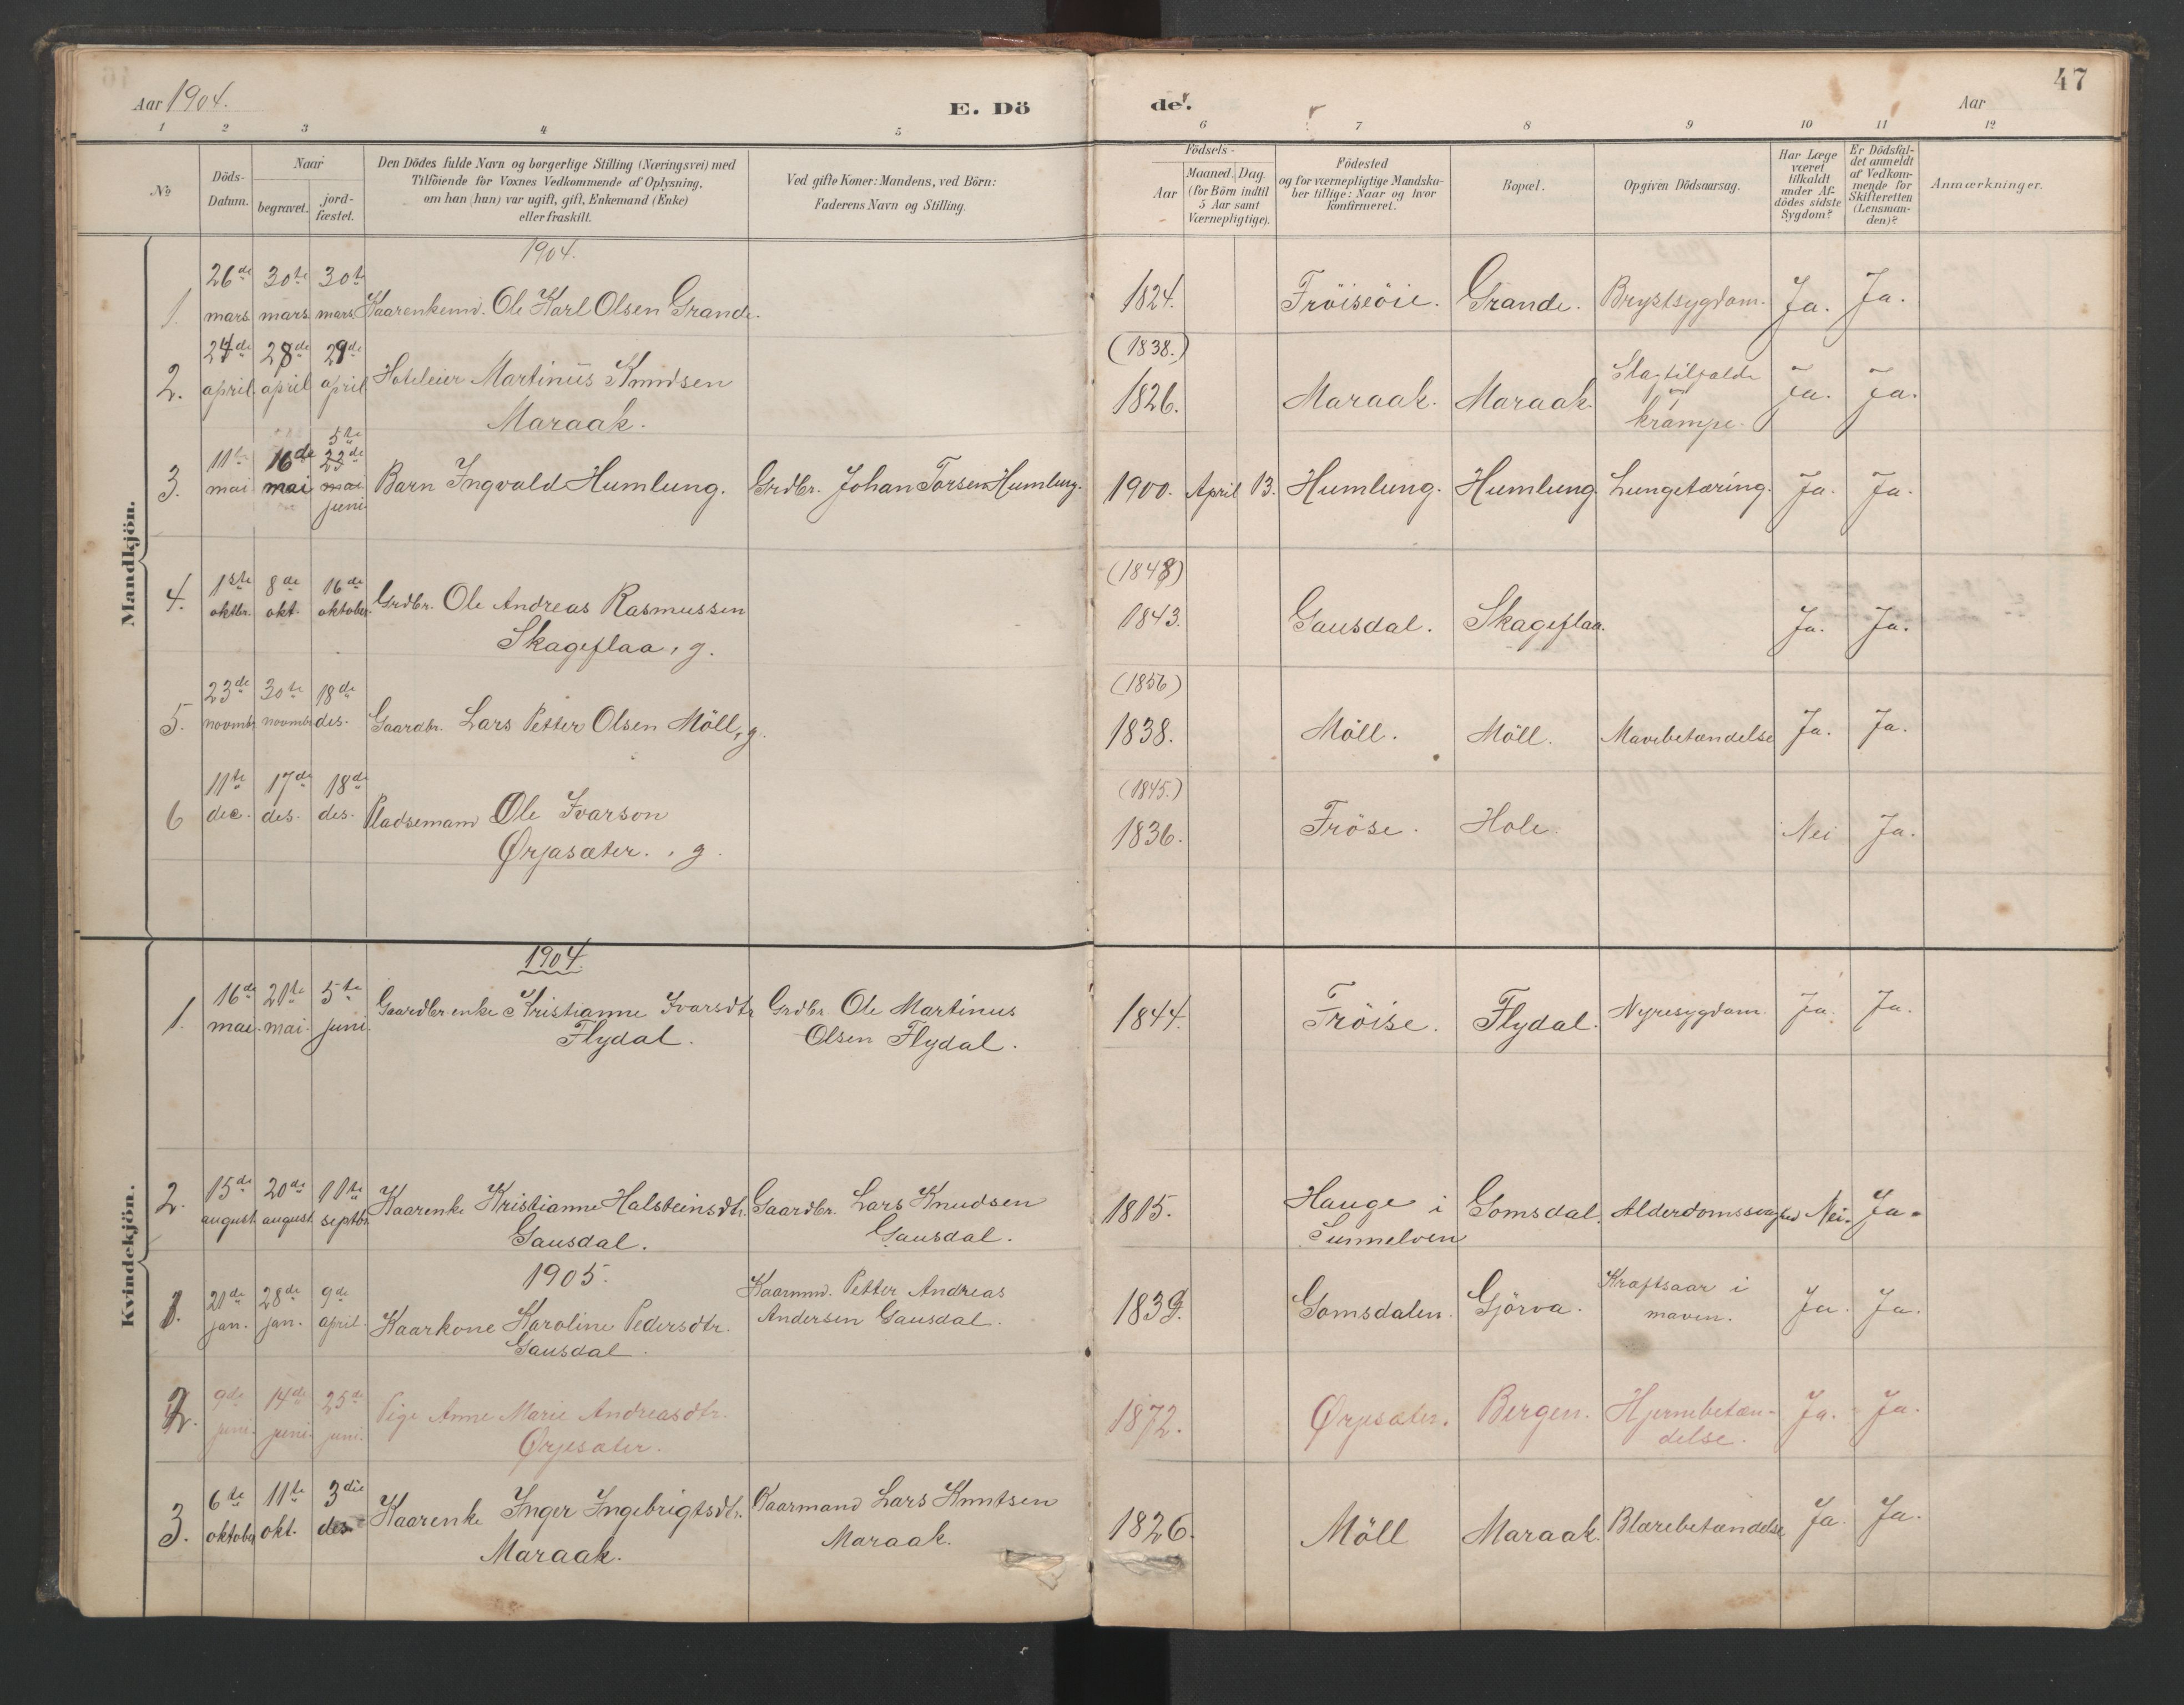 47
Aar 1904.
E. Döde.
Aar
1 2 3 4 5 6 7 8 9 10 11 12
No
Döds-Datum.
Naar
begravet.
jord-fæstet.
Den Dödes fulde Navn og borgerlige Stilling (Næringsvei) med
Tilföiende for Voxnes Vedkommende af Oplysning,
om han (hun) var ugift, gift, Enkemand (Enke)
eller fraskilt.
Ved gifte Koner: Mandens, ved Börn:
Faderens Navn og Stilling.
Födsels-
Aar
Maaned. Dag.
(for Börn indtil
5 Aar samt
Værnepligtige).
Födested
og for værnepligtige Mandska-
ber tillige: Naar og hvor
konfirmeret.
Bopæl.
Opgiven Dödsaarsag.
Har Læge
været
tilkaldt
under Af-
dödes sidste
Sygdom?
Er Dödsfal-
det anmeldt
af Vedkom-
mende for
Skifteretten
(Lensman-
den)?
Anmærkninger.
Mandkjön.
1904.
26de 30te 30te
1. mars mars mars Kaarenkemd. Ole Karl Olsen Grande. 1824. Fröiseöie. Grande. Brystsygdom. Ja. Ja.
27de 28de 29de (1838.)
2. april april april Hoteleier Martinus Knudsen 1826. Maraak. Maraak. Slagtilfælde Ja. Ja.
Maraak. krampe.
5te
11te 16de 23de
3. mai mai mai Barn Ingvald Humlung. Grdbr. Johan Torsen Humlung. 1900. April 13. Humlung. Humlung. Lungetæring. Ja. Ja.
juni
1ste 8de 16de (1848)
4. oktbr. okt. oktober. Grdbr. Ole Andreas Rasmussen 1843. Gausdal. Skageflaa. Ja. Ja.
Skageflaa, g.
23de 30te 18de (1856)
5. novmbr. novmbr des. Gaardbr. Lars Petter Olsen Möll, g. 1838. Möll. Möll. Mavebetændelse Ja. Ja.
11te 17de 18de (1845.)
6 dec. des. des. Pladsemand Ole Ivarson 1836. Fröse. Hole. Nei Ja.
Ørjasæter., g.
Kvindekjön.
1904.
16de 21te 5te
1. mai. mai. juni. Gaardbr enke Kristianne Ivarsdtr Grdbr Ole Martinus 1844. Fröise. Flydal. Nyresygdom. Ja. Ja.
Flydal. Olsen Flydal.
15de 20de 11te
2. august august septbr. Kaarenke Kristianne Halsteinsdtr. Gaardbr. Lars Knudsen 1815. Hauge i Gomsdal. Alderdomssvaghed Nei. Ja.
Gausdal. Gausdal. Sunnelven
1905.
21de 28de 9de Kaarmd. Petter Andreas
1. jan. jan. april. Kaarkone Karoline Pedersdtr. Andersen Gausdal. 1839. Gomsdalen. Gjörva. Kræftsaar i Ja. Ja.
Gausdal. maven.
9de 14de 25de
2. juni. juni. juni. Pige Anne Marie Andreasdtr. 1872. Ørjesæter. Bergen. Hjernebetæn- Ja. Ja.
Ørjesæter. delse.
6te 11te 3die
3. oktober okt. des Kaarenke Inger Ingebrigtsdtr. Kaarmand Lars Knutsen 1826. Möll Maraak. Blærebetændelse Ja. Ja.
Maraak. Maraak.